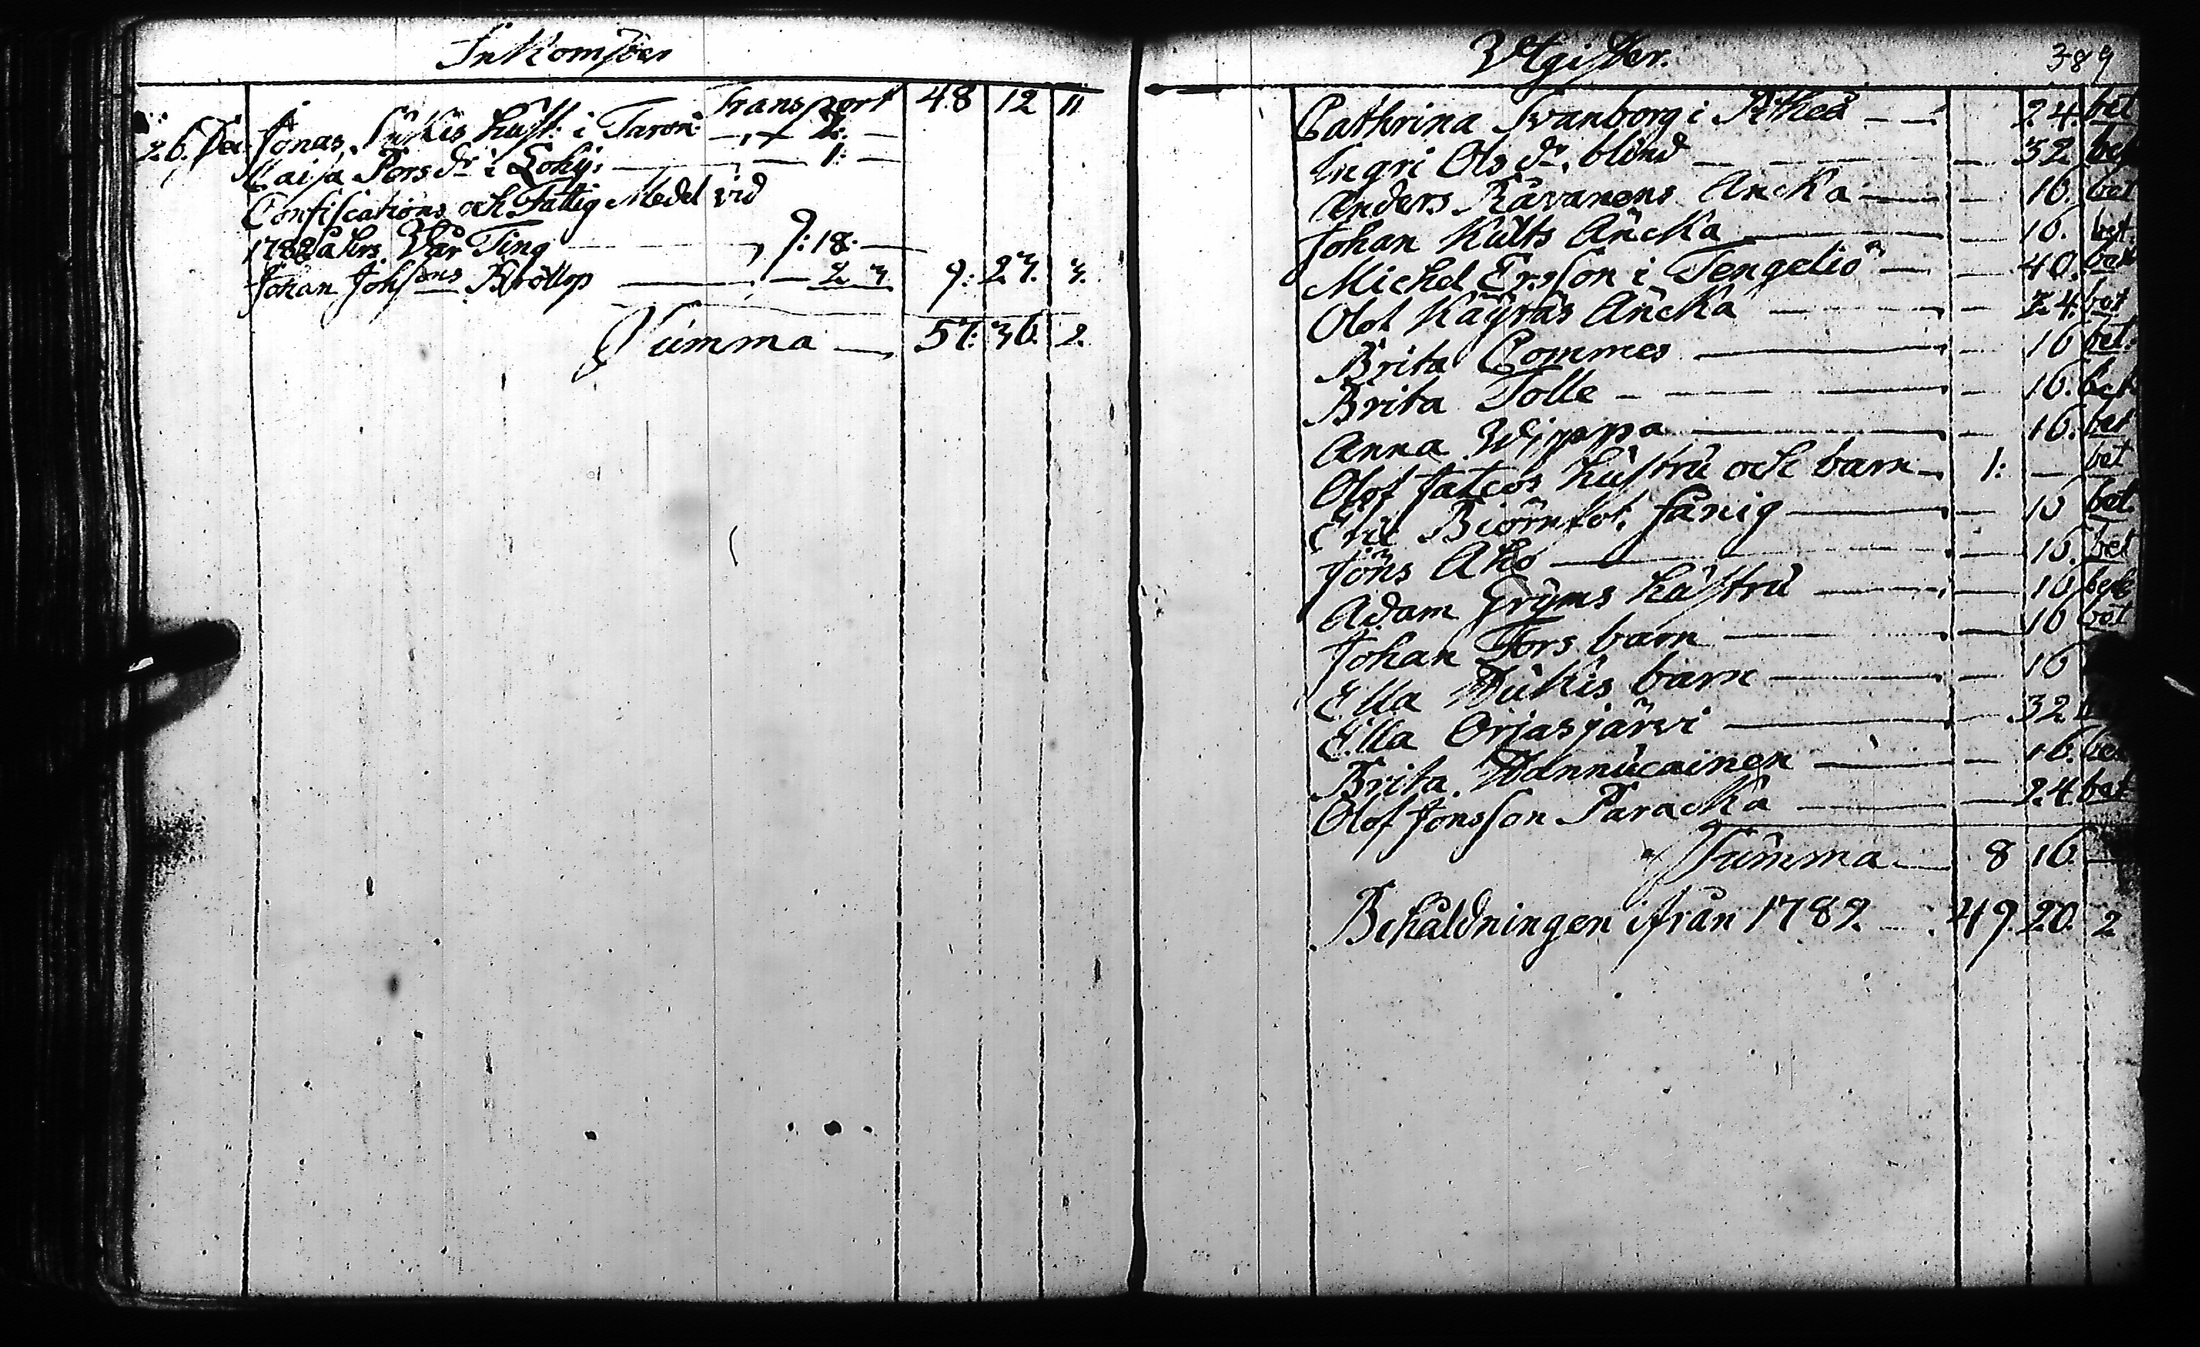 Inkomster
Transport 48 12 11
26. Dec. Jonas Sukis hust: i Taron: — 2: —
Caisa Pers dr i Lohij: — 1: —
Confiscations och Fattig Medel vid
1788 åhrs Vår Ting — 9: 18: —
Johan Johssons Bröllop — 2 3 9: 23. 3.
Summa — 57: 36. 2.
Utgifter. 389
Cathrina Svanborg i Pitheå — 24. bet
Ingri Ols dr. blind — 32 bet
Anders Råvanens Äncka — 16. bet
Johan Kults Äncka — 16. bet
Michel Ersson i Tengeliö — 40. bet
Olof Käyräs Äncka — 24 bet
Brita Pommes — 16 bet.
Brita Tolle — 16. bet
Anna Wippa — 16. bet
Olof Fatcos hustru och barn — 1: — bet
Eric Biörnfot, fånig — 16 bet.
Jöns Aho — 16. bet
Adam Gryms hustru — 16 bet
Johan Fors barn — 16 bet
Ella barn — 16
Ella Orjasjärvi — 32
Brita Wannucainen — 16. bet
Olof Jonsson Paracka — 24. bet
Summa — 8 16. —
Behåldningen ifrån 1789 — 49. 20. 2